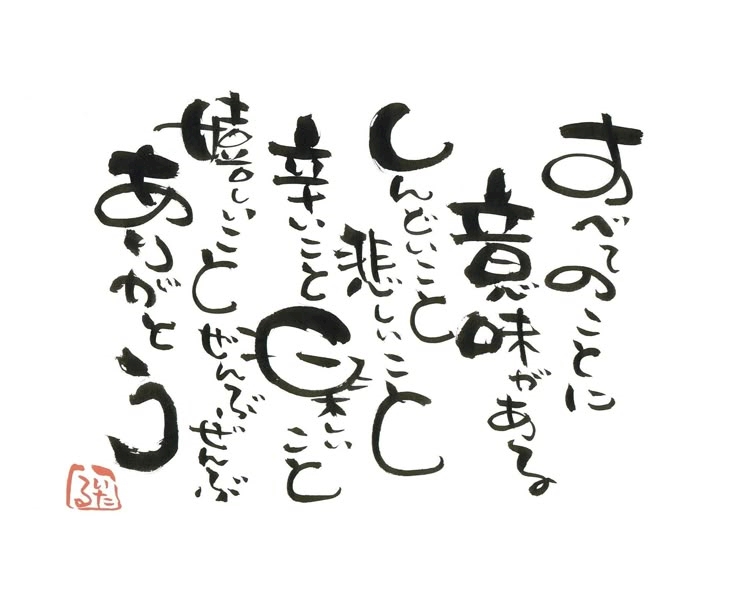 すべてのことに
意味がある
しんどいこと
悲しいこと
辛いこと
楽しいこと
嬉しいこと
ぜんぶ、ぜんぶ
ありがとう
いたる